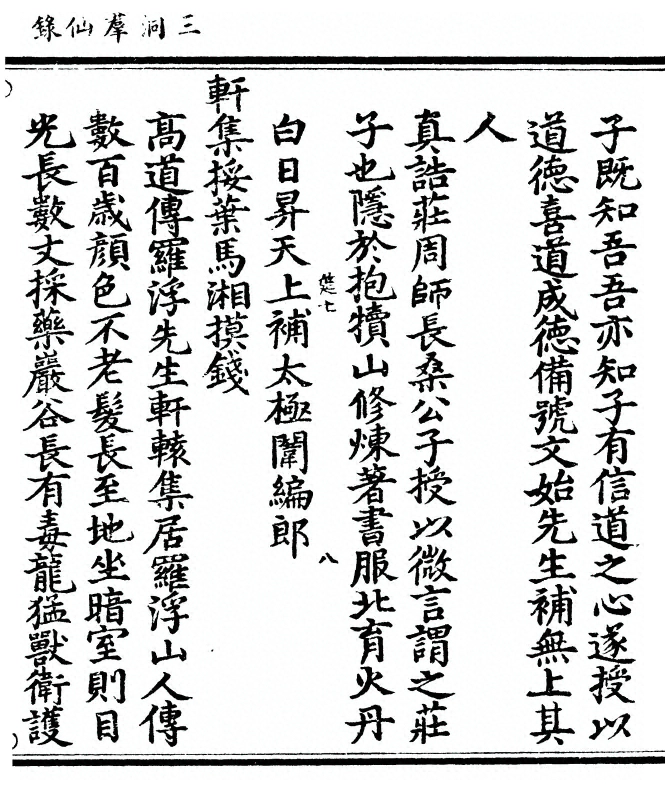 三洞羣仙錄
子既知吾吾亦知子有信道之心遂授以
道德喜道成德備號文始先生補無上其
人
真誥莊周師長桑公子授以微言謂之莊
子也隱於抱犢山修煉著書服北育火丹
七
八
白日昇天上補太極闈編郎
軒集挼葉馬湘摸錢
高道傳羅浮先生軒轅集居羅浮山人傳
數百歲顏色不老髮長至地坐暗室則目
光長數丈採藥巖谷長有毒龍猛獸衛護